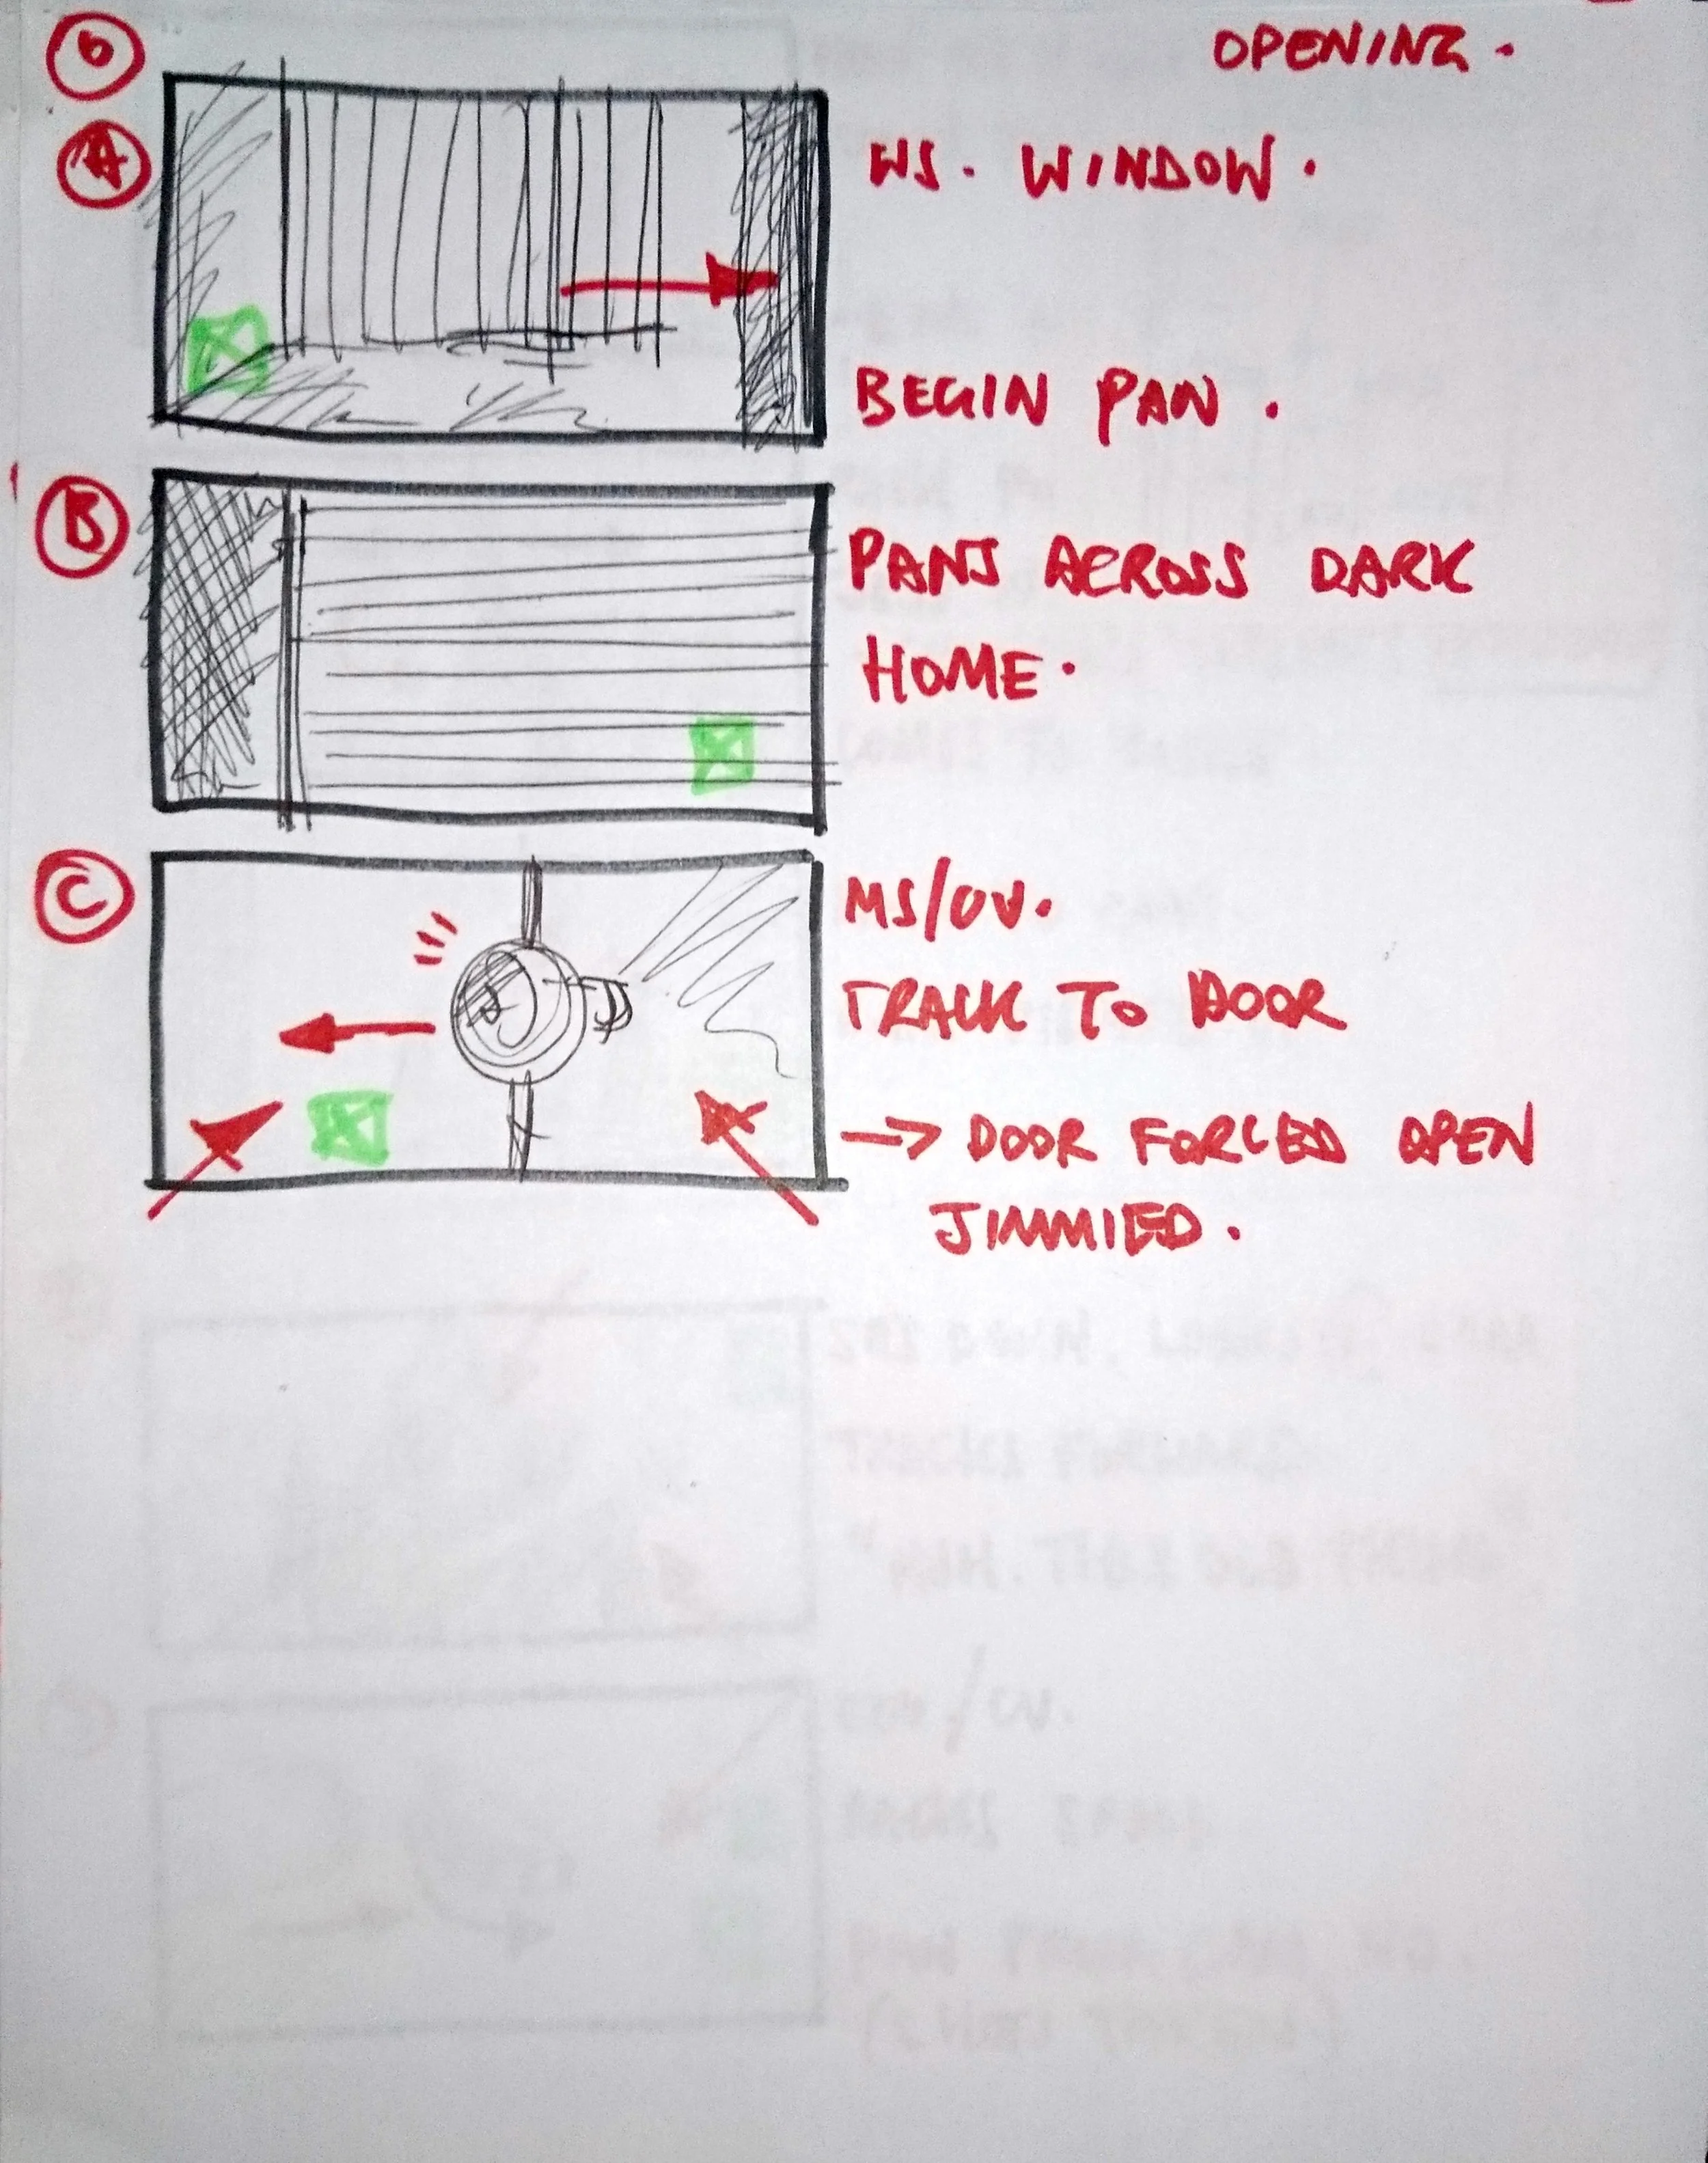 OPENING.
0
A
WS. WINDOW.
BEGIN PAN.
B
PANS ACROSS DARK
HOME.
C
MS/CU.
TRACK TO DOOR
-> DOOR FORCED OPEN
JIMMIED.